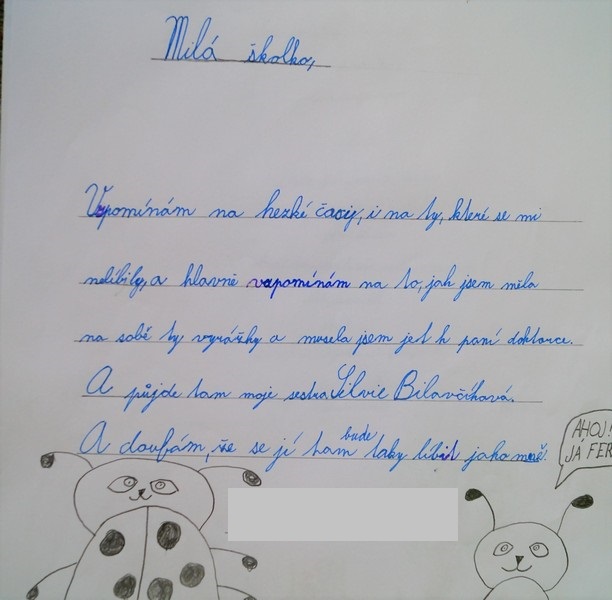 Milá školko,
Vzpomínám na hezké časy, i na ty, které se mi
nelíbily, a hlavně vzpomínám na to, jak jsem měla
na sobě ty vyrážky a musela jsem jet k paní doktorce.
A půjde tam moje sestra Silvie Bilavčíková.
A doufám, že se jí tam bude taky líbit jako mně.
AHOJ!
JÁ FER